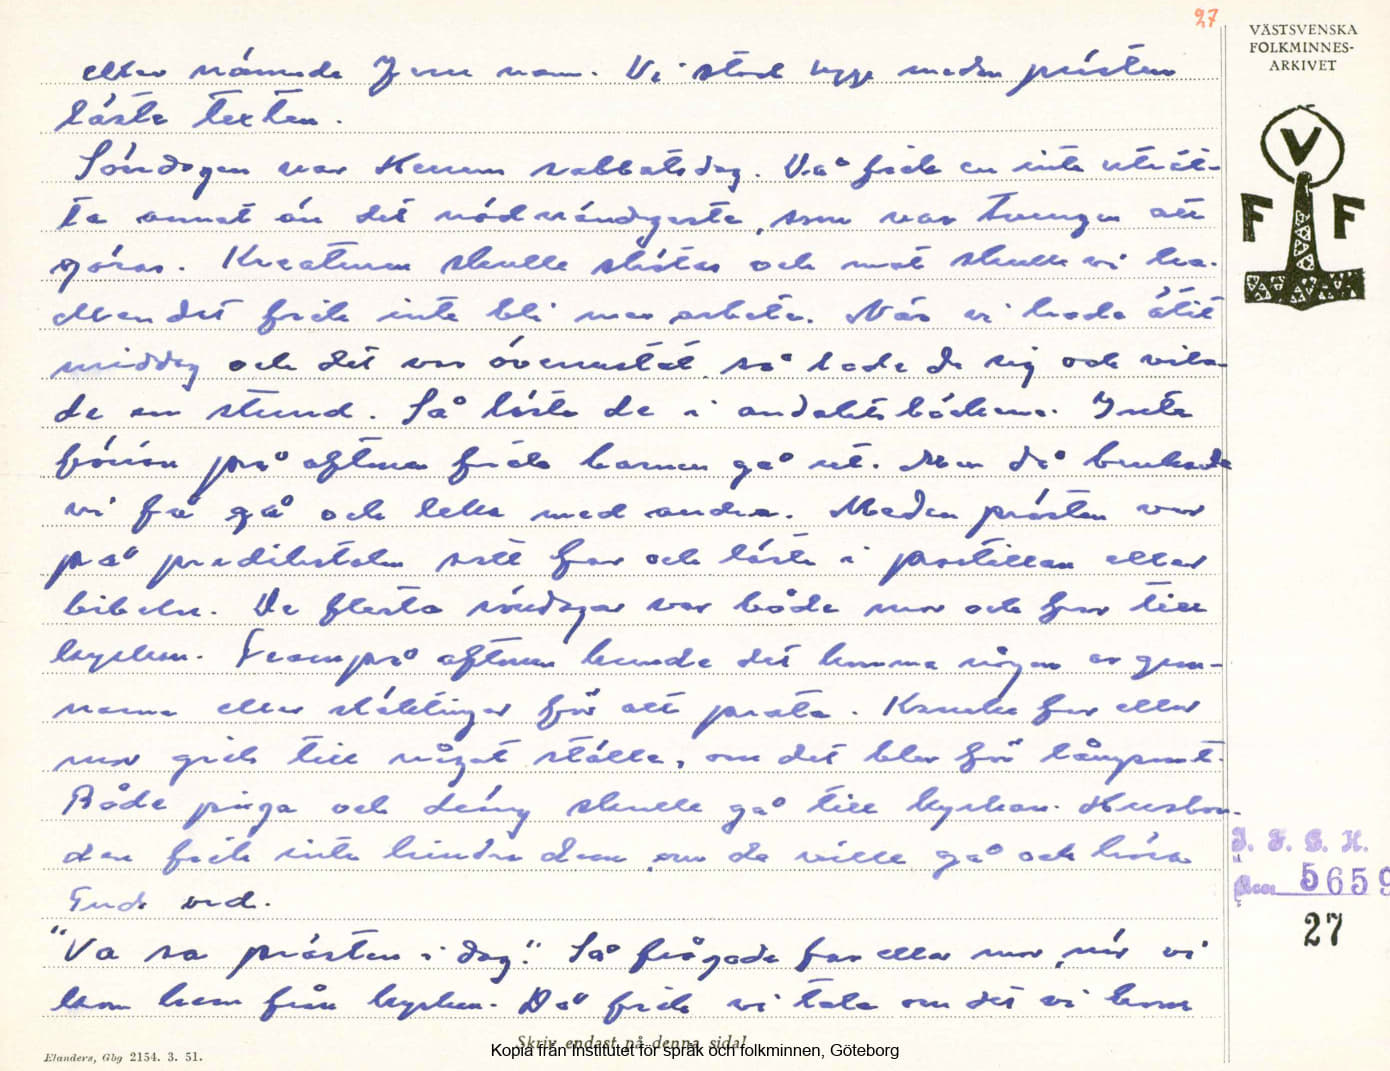 27
VÄSTSVENSKA
FOLKMINNES-
ARKIVET
eller nämnde Jesu namn. Vi stod upp medan prästen
läste texten.
V
F F
Söndagen var Herrens sabbatsdag. Då fick en inte uträt-
ta annat än det nödvändigaste, som var tvungen att
göras. Kreaturen skulle skötas och mat skulle vi ha.
Men det fick inte bli mer arbete. När vi hade ätit
middag och det var överstökat så lade de sig och vila-
de en stund. Så läste de i andaktsböckerna. Inte
förrän på aftonen fick barnen gå ut. Men då brukade
vi få gå och leka med andra. Medan prästen var
på predikstolen satt far och läste i postillan eller
bibeln. De flesta söndagar var både mor och far till
kyrkan. Frampå aftonen kunde det komma någon av gran-
narna eller släktingar för att prata. Kanske far eller
mor gick till något ställe, om det blev för långsamt.
Både piga och dräng skulle gå till kyrkan. Husbon-
den fick inte hindra dem, om de ville gå och höra
Guds ord.
"Va sa prästen i dag?" Så frågade far eller mor, när vi
kom hem från kyrkan. Då fick vi tala om det vi kom
I. F. G. H.
5659
27
Skriv endast på denna sida!
Elanders, Gbg 2154. 3. 51.
Kopia från Institutet för språk och folkminnen, Göteborg